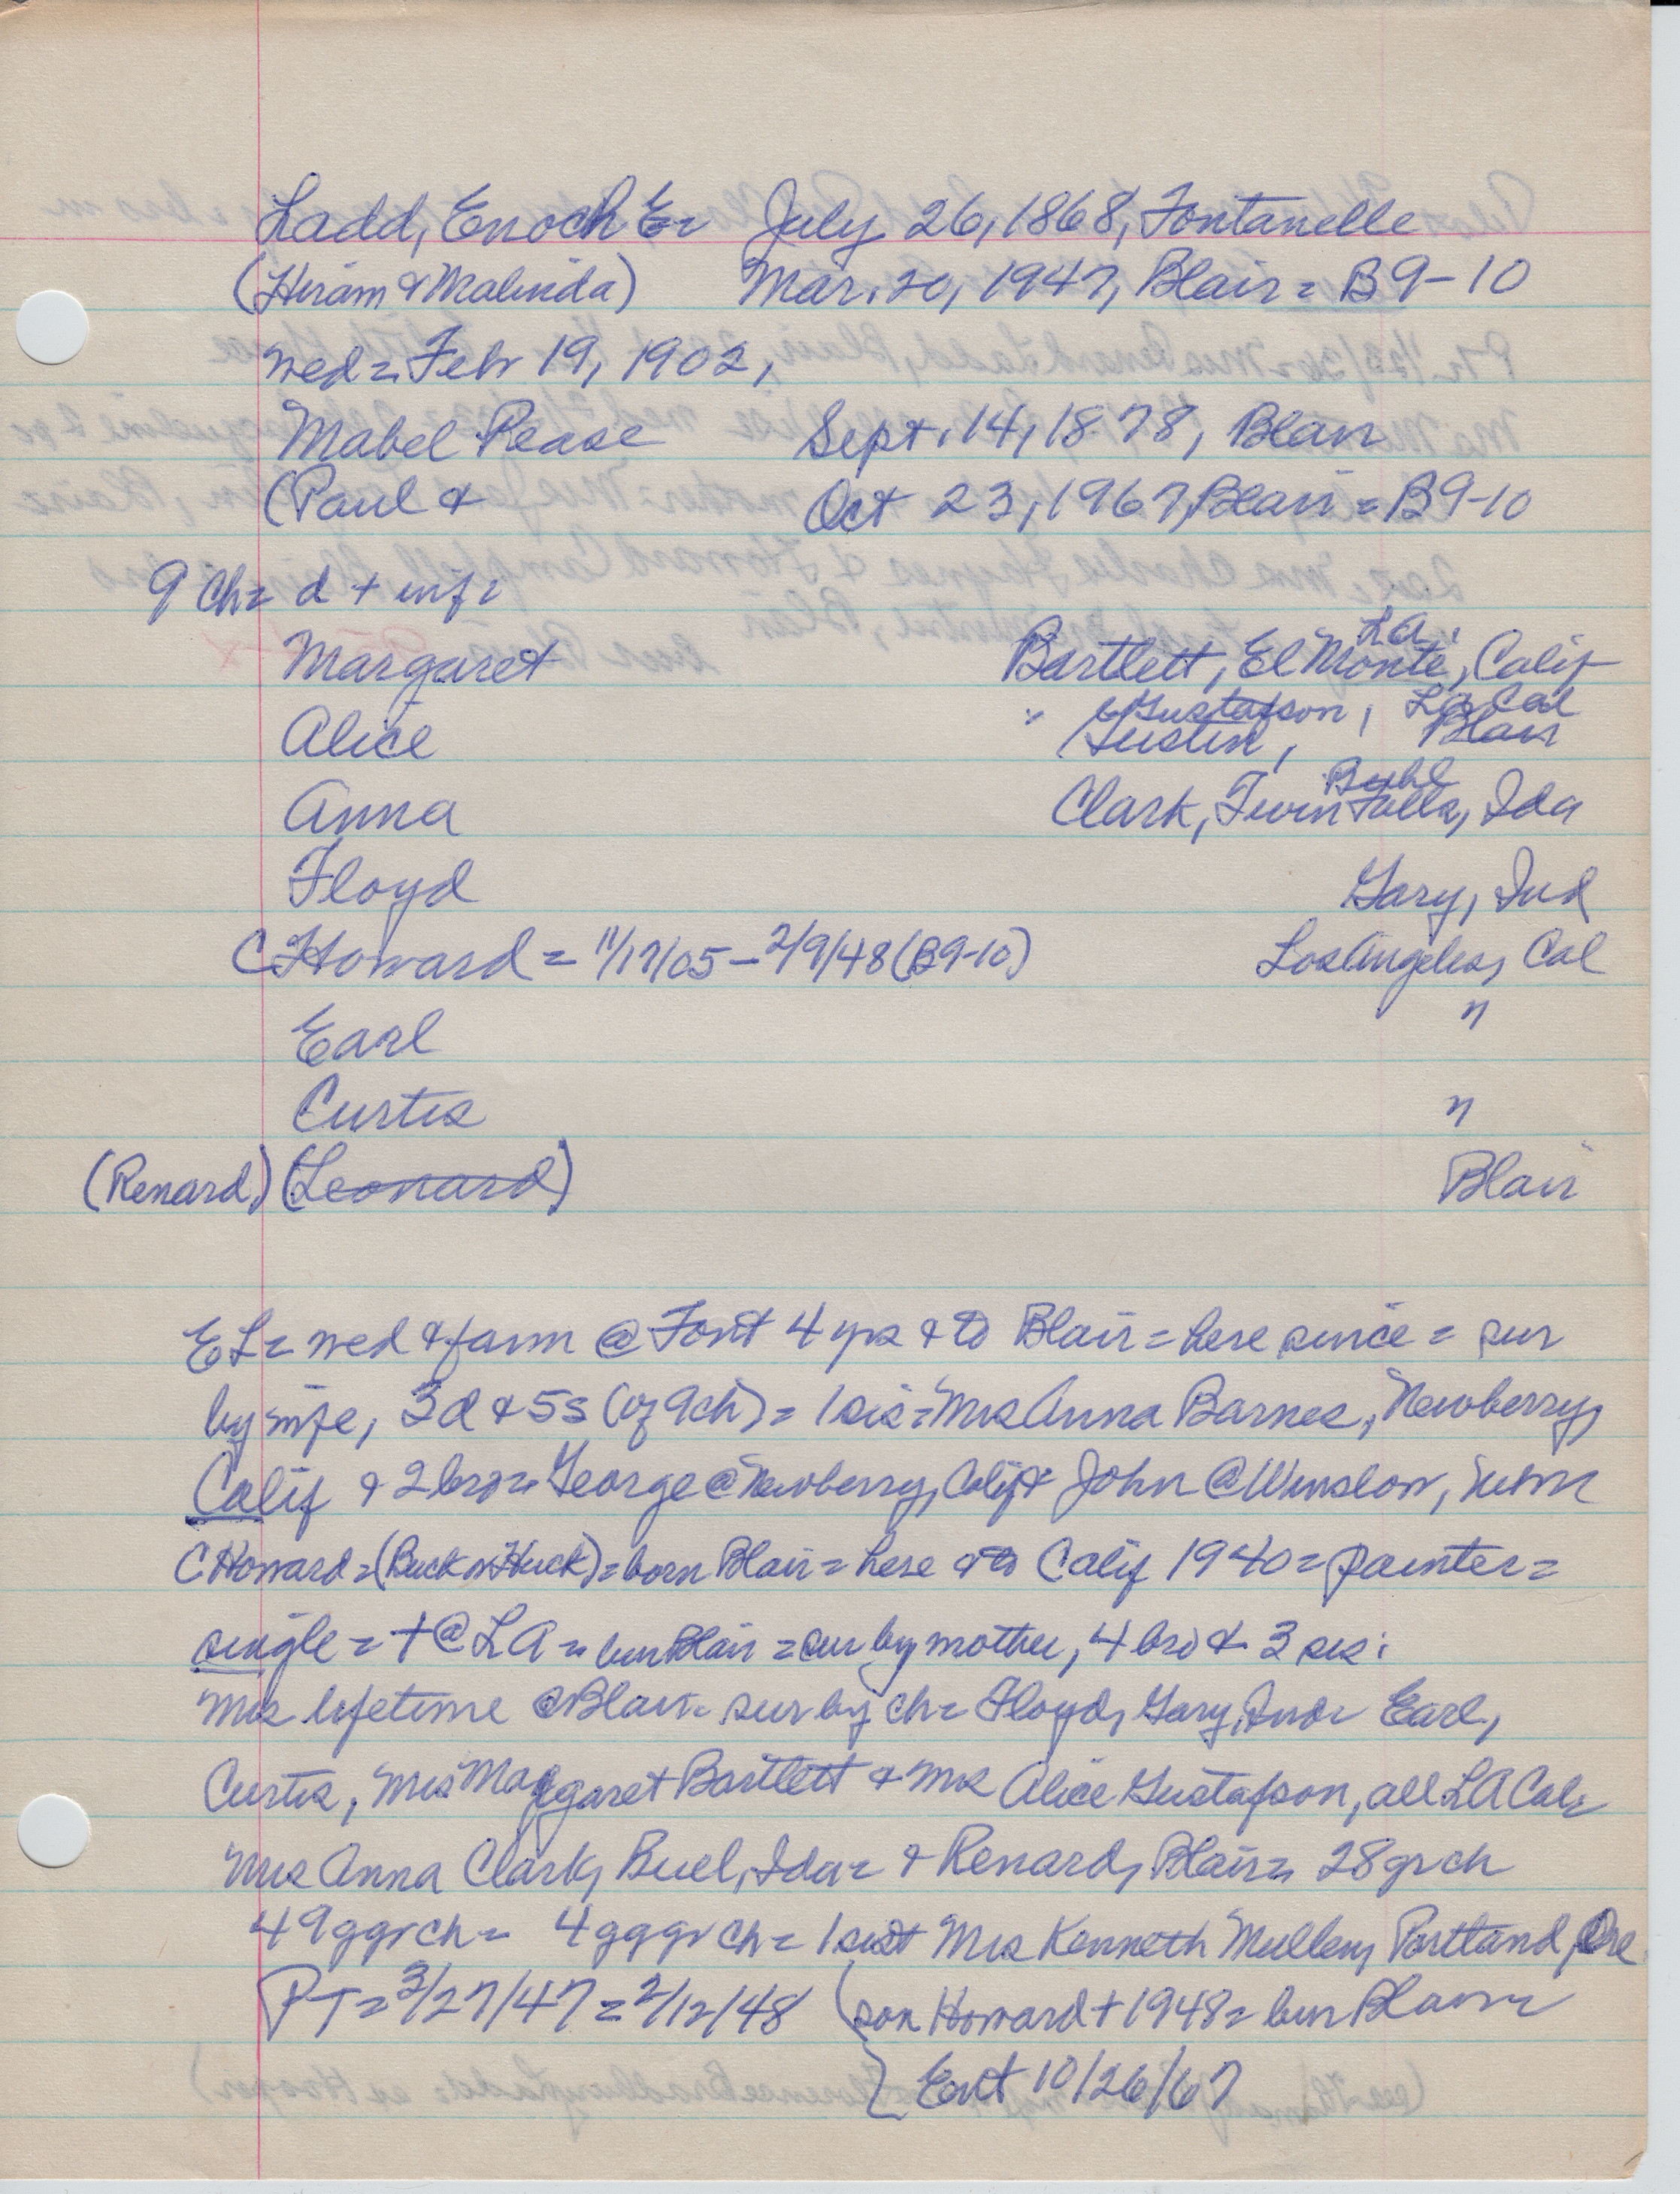 Ladd, Enoch E= July 26, 1868, Fontanelle
(Hiram & Malinda) Mar. 20, 1947, Blair = B9-10
wed = Feb 19, 1902,
Mabel Pease Sept. 14, 1878, Blair
(Paul & Oct 23, 1967, Blair = B9-10
9 ch = d + inf =
LA.
Margaret Bartlett, El Monte, Calif
" Gustafson, LA Cal
Alice Gustin, Blair
Buhl
Anna Clark, Twin Falls, Ida
Floyd Gary, Ind
C Howard = 11/17/05 – 2/9/48 (B9-10) Los Angeles, Cal
Earl "
Curtis "
(Renard) (Leonard) Blair
EL = wed & farm @ Font 4 yrs & to Blair = here since = sur
by wife, 3d & 5s (of 9ch) = 1 sis = Mrs Anna Barnes, Newberry,
Calif & 2 bro = George @ Newberry, Calif & John @ Winslow,
C Howard = (Buck or Huck) = born Blair = here & to Calif 1940 = painter =
single = + @ LA = bur Blair = sur by mother, 4 bro & 3 sis:
Mrs lifetime @ Blair = sur by ch = Floyd, Gary, Ind = Earl,
Curtis, Mrs Margaret Bartlett & Mrs Alice Gustafson, all LA Cal =
Mrs Anna Clark, Buel, Ida = & Renard, Blair = 28 grch
49 ggrch = 4 gggrch = 1 sist Mrs Kenneth Mullen, Portland, Ore
PT = 3/27/47 = 2/12/48 (son Howard + 1948 = bur Blair =
{ Ent 10/26/67